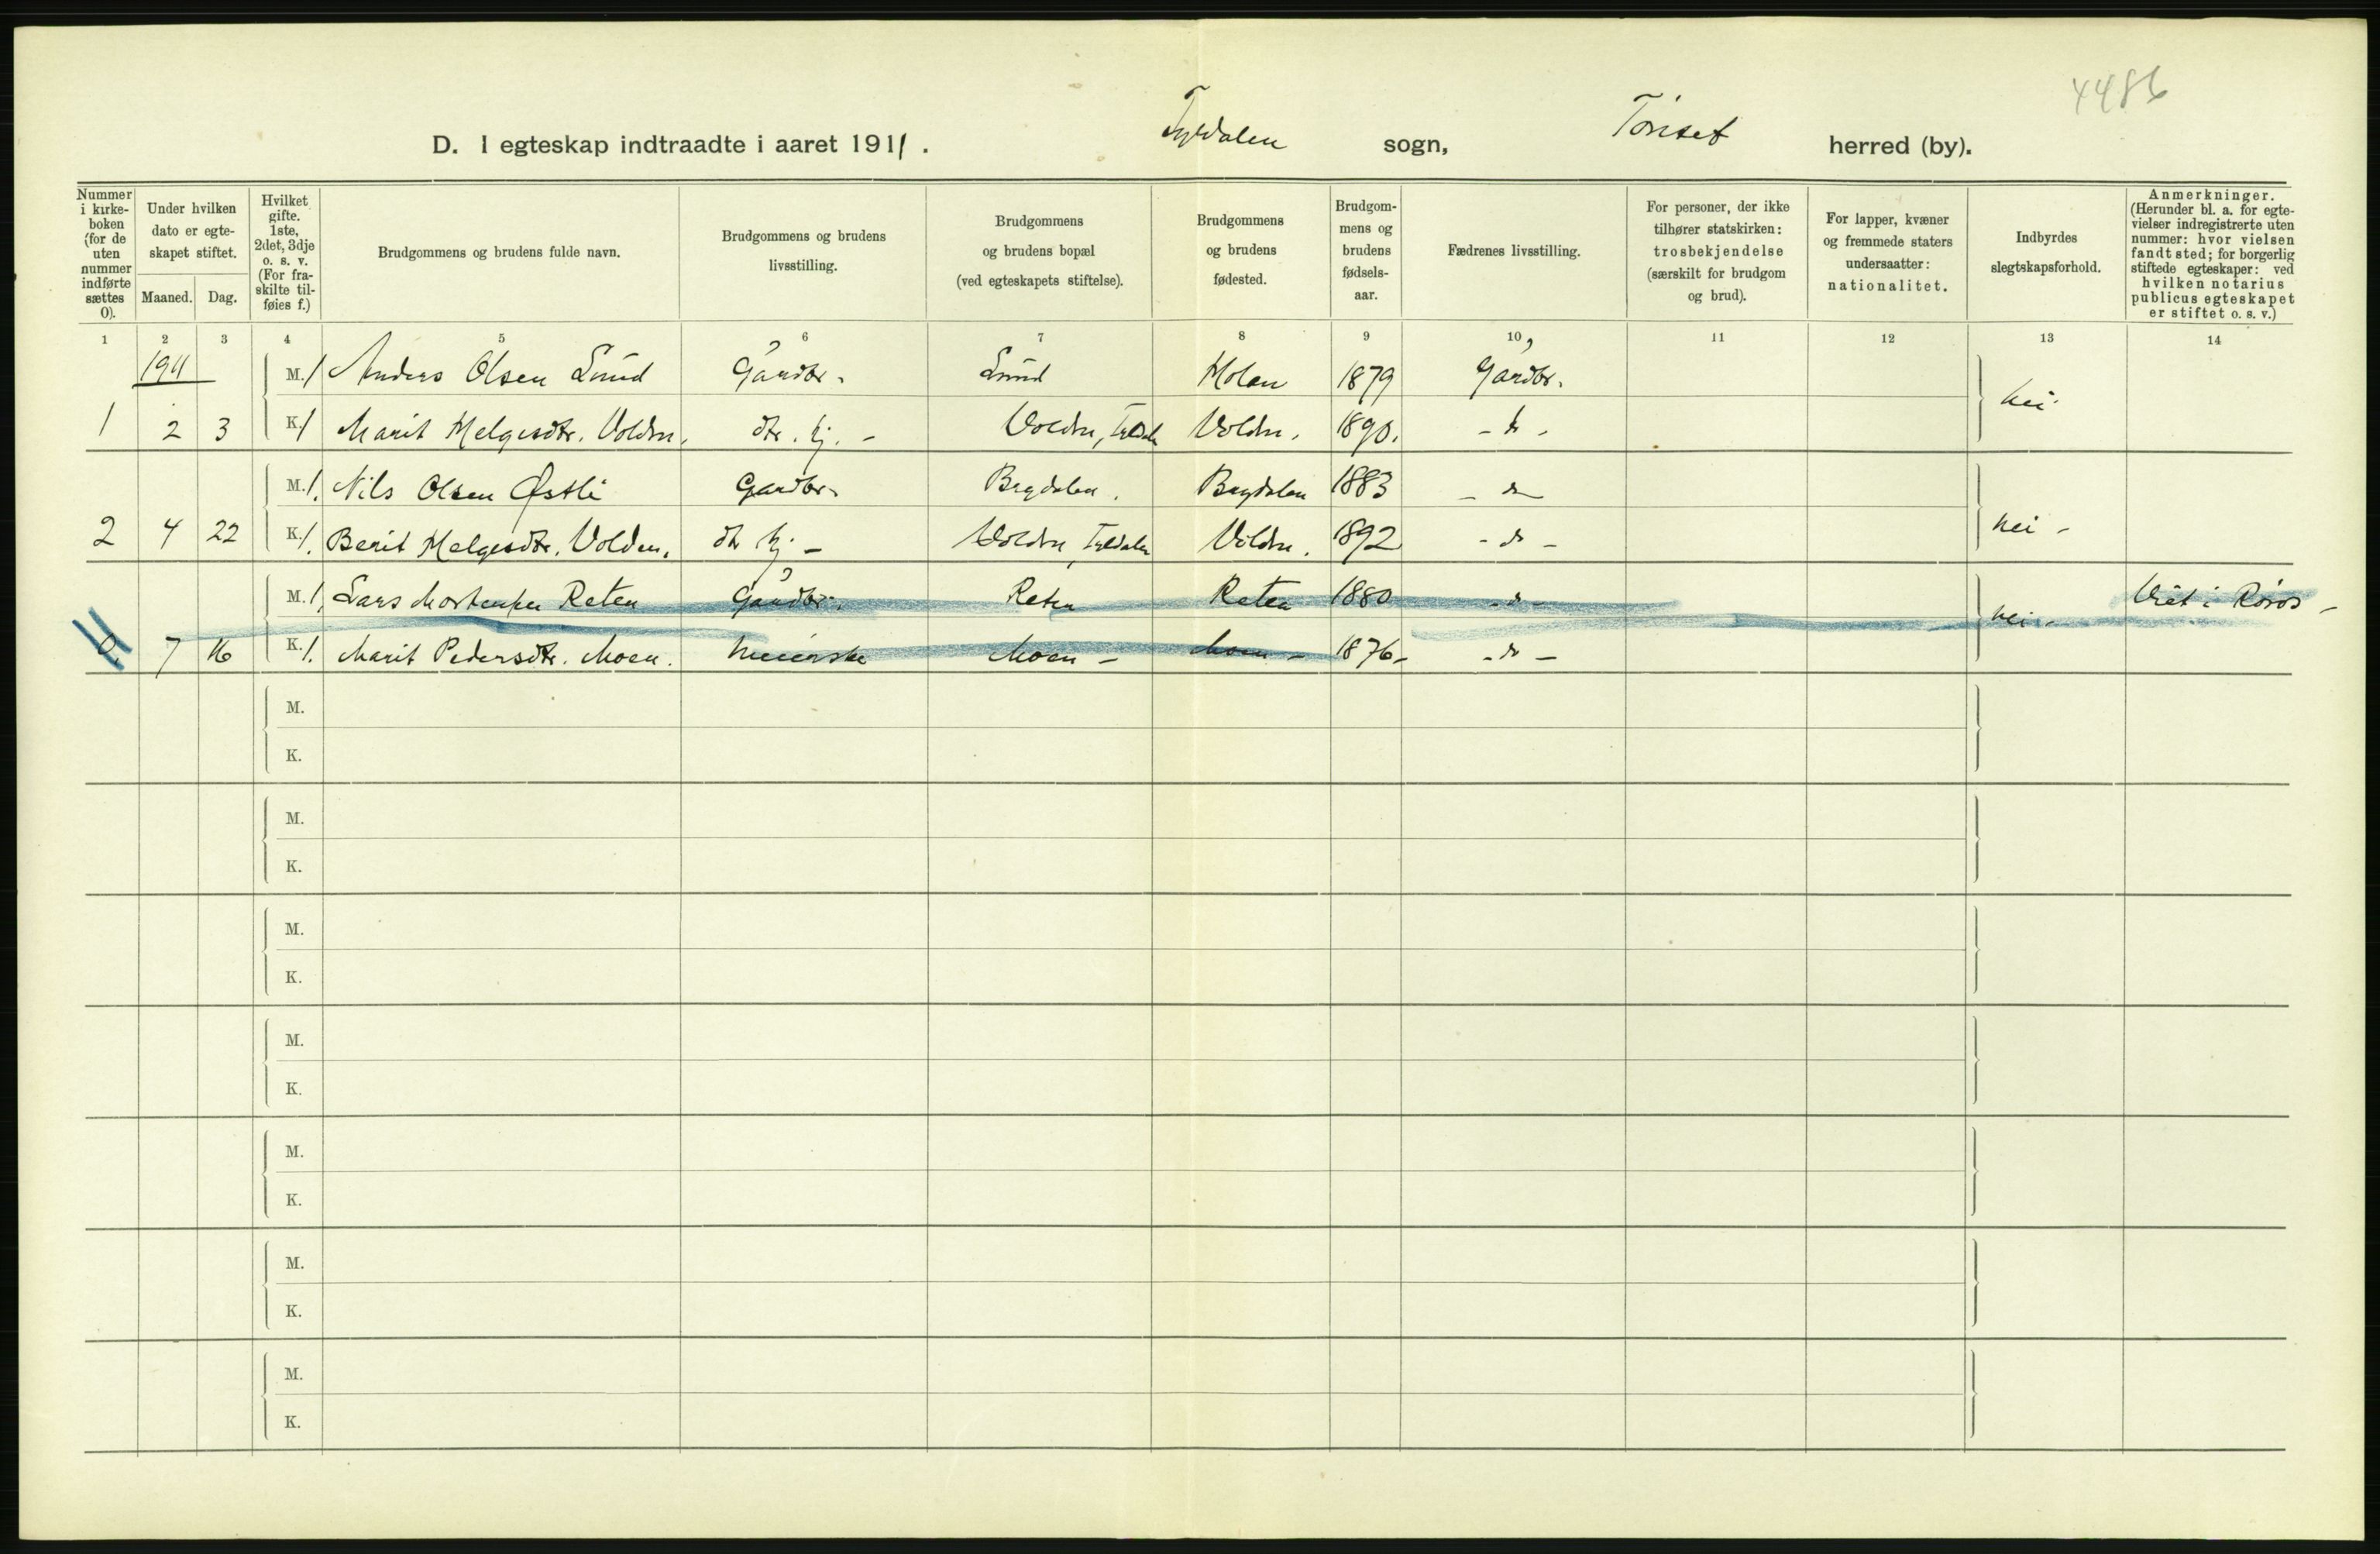 4486
D. I egteskap indtraadte i aaret 1911. Tyldalen sogn, Tönset herred (by).
Nummer i kirke-boken (for de uten nummer indførte sættes 0).
Under hvilken dato er egte-skapet stiftet.
Maaned. Dag.
Hvilket gifte. 1ste, 2det, 3dje o. s. v. (For fra-skilte til-føies f.)
Brudgommens og brudens fulde navn.
Brudgommens og brudens livsstilling.
Brudgommens og brudens bopæl (ved egteskapets stiftelse).
Brudgommens og brudens fødested.
Brudgom-mens og brudens fødsels-aar.
Fædrenes livsstilling.
For personer, der ikke tilhører statskirken: trosbekjendelse (særskilt for brudgom og brud).
For lapper, kvæner og fremmede staters undersaatter: nationalitet.
Indbyrdes slegtskapsforhold.
Anmerkninger. (Herunder bl. a. for egte-vielser indregistrerte uten nummer: hvor vielsen fandt sted; for borgerlig stiftede egteskaper: ved hvilken notarius publicus egteskapet er stiftet o. s. v.)
1 2 3 4 5 6 7 8 9 10 11 12 13 14
1911 M. 1 Anders Olsen Lund Gaardbr. Lund Molan 1879 Gaardbr.
1 2 3 K. 1 Marit Helgesdtr. Volden. dtr. hj. - Volden, Tyldalen Volden. 1890. - do - nei.
M. 1. Nils Olsen Østli Gaardbr. Brydalen. Brydalen 1883 - do -
2 4 22 K. 1. Berit Helgesdtr. Volden. dtr hj - Volden, Tyldalen Volden. 1892 - do - nei -
M. 1. Lars Mortensen Reten Gaardbr. Reten Reten 1880 - do - Viet i Røros -
0. 7 16 K. 1. Marit Pedersdtr. Moen. Meierske Moen - Moen - 1876 - - do - nei -
M.
K.
M.
K.
M.
K.
M.
K.
M.
K.
M.
K.
M.
K.